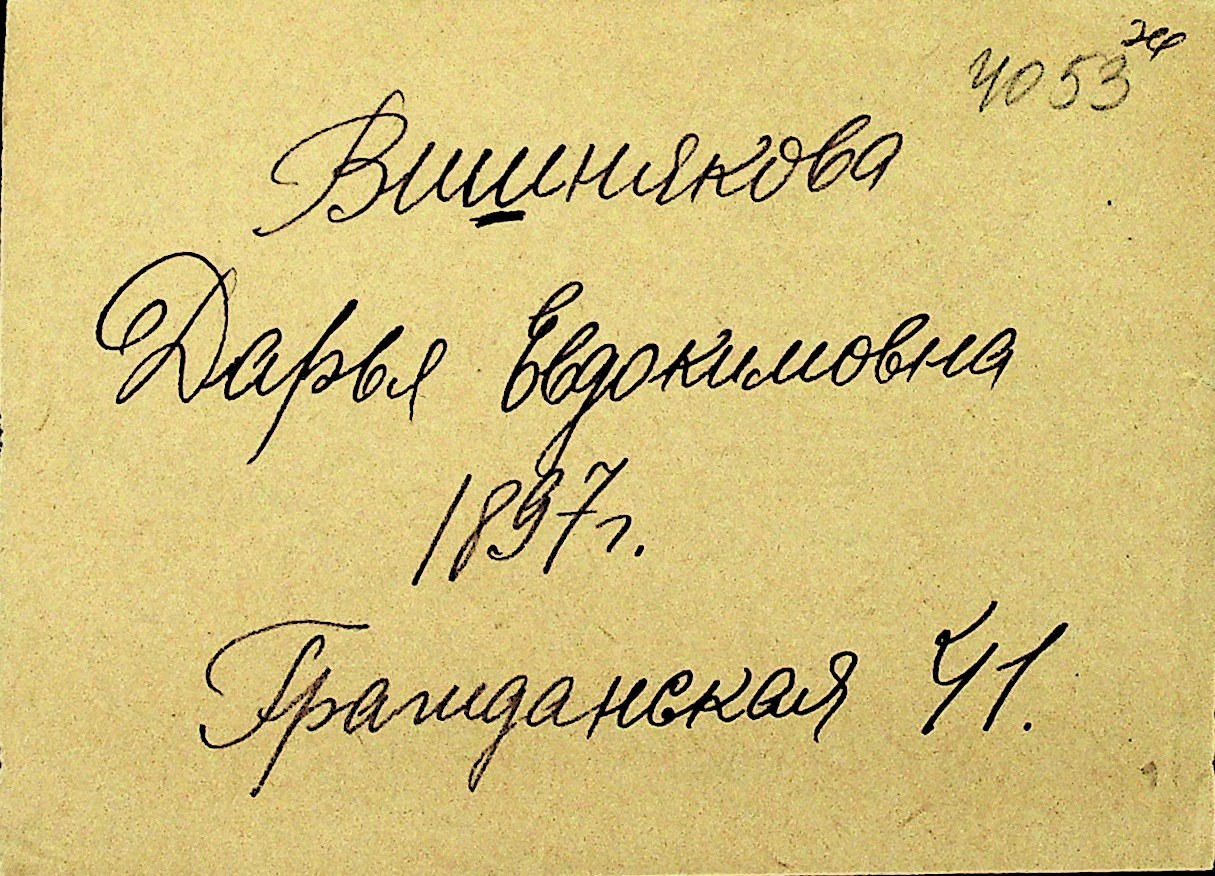 4053
Вишнякова
Дарья Евдокимовна
1897г.
Гражданская 41.